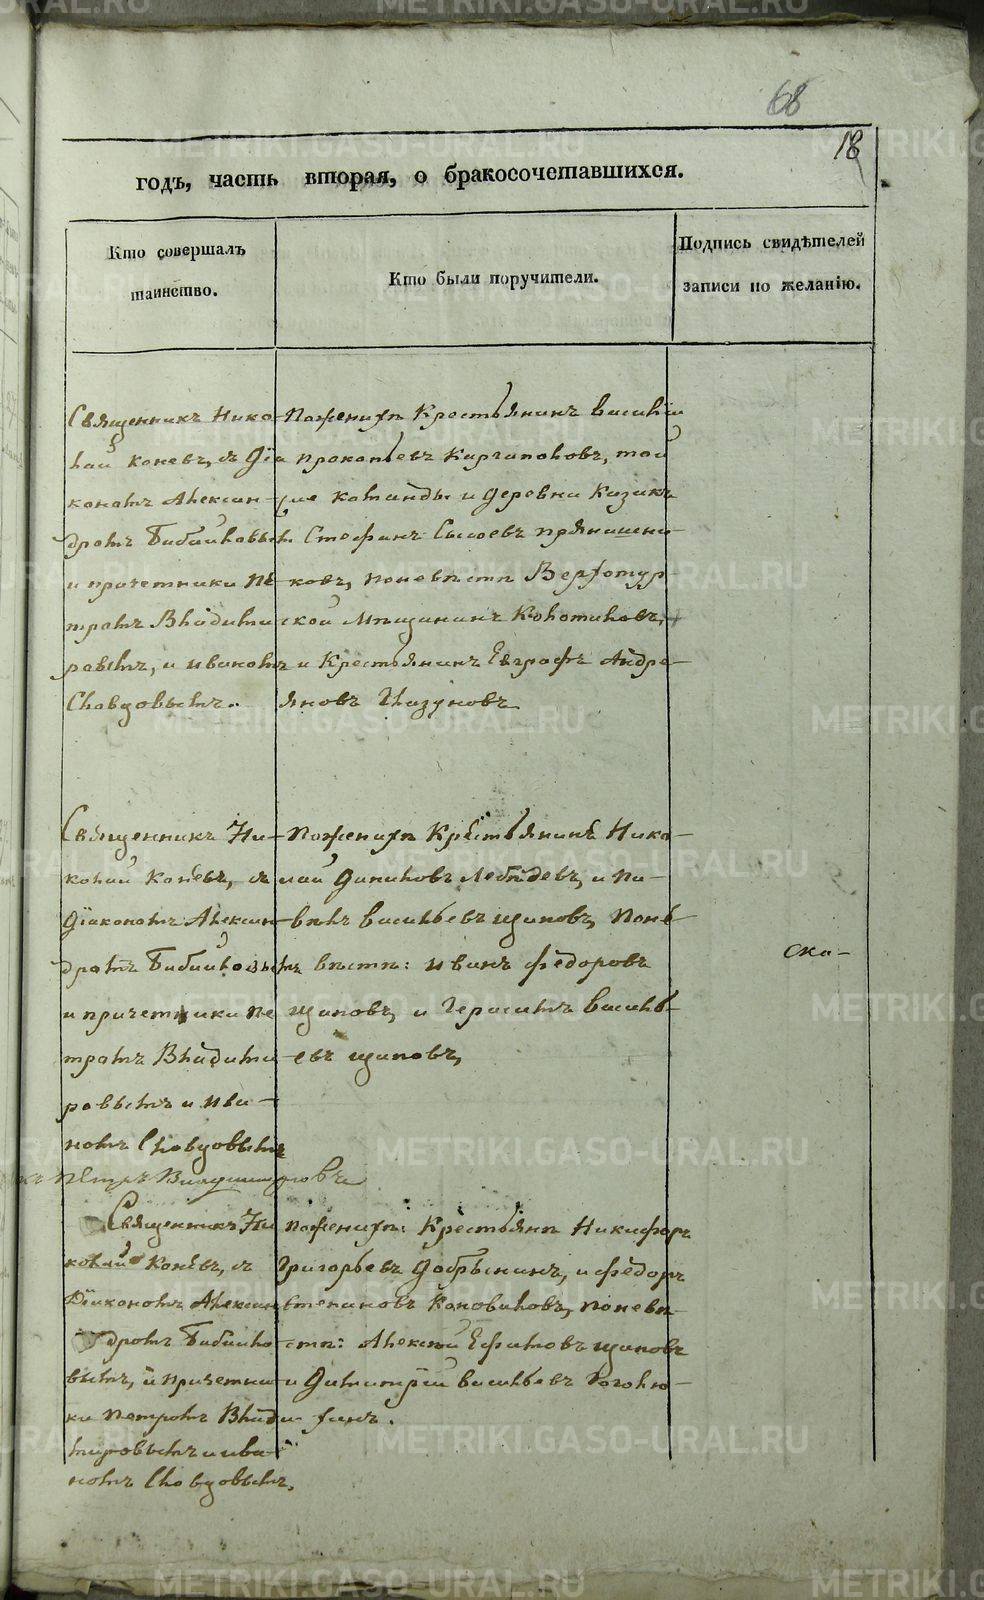 68
18
годъ, часть вторая, о бракосочетавшихся.
Кто совершалъ
таинство.
Кто были поручители.
Подпись свидѣтелей
записи по желанію.
Священникъ Нико-
лай Коневъ, съ Діа
кономъ Алексан-
дромъ Бибиковым
и причетники Пе
тромъ Владими
ровымъ, и иваномъ
Словцовымъ.
Поженихѣ Крестьянинъ василій
прокопьевъ Каргаполовъ, той
же команды и деревни
Стефанъ Сысоевъ прянишни-
ковъ, поневѣстѣ Верхотур-
ской Мѣщанинъ
и Крестьянинъ Евграфъ Андре-
яновъ Глазуновъ
Священникъ Ни-
колай Коневъ, съ
Діакономъ Алексан-
дромъ Бибиковымъ
и причетники Пе
тромъ Влади­ми
ровымъ и ива-
номъ Словцовымъ
Поженихѣ Крестьянинъ Нико-
лай Даниловъ Лебедевъ, и па-
велъ васильевъ щаповъ, поне-
вѣстѣ: иванъ федоровъ
щаповъ, и Герасимъ василь-
евъ щаповъ,
ска-
Петръ Владимировъ
Священникъ Ни
колай Коневъ, съ
Діакономъ Алексан
дромъ Бибико
вымъ, и причетни-
ки петромъ Влади-
мировымъ и ива
номъ Словцовымъ.
поженихѣ: Крестьяне Никифоръ
Григорьевъ Добрынинъ, и федоръ
степановъ Коноваловъ, поневѣ-
стѣ: Алексѣй Ефимовъ щаповъ
и Димитрій васильевъ